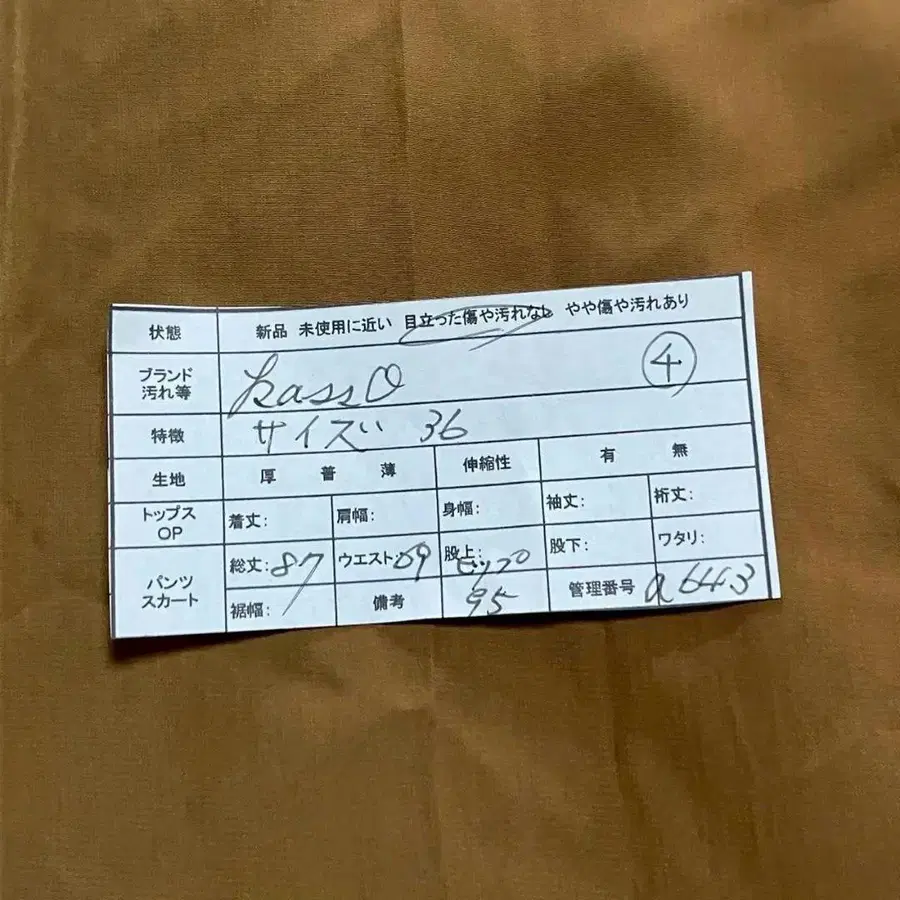 状態 新品 未使用に近い 目立った傷や汚れなし やや傷や汚れあり
ブランド
汚れ等 kasso ④
特徴 サイズ 36
生地 厚 普 薄 伸縮性 有 無
トップス
OP 着丈: 肩幅: 身幅: 袖丈: 裄丈:
パンツ
スカート 総丈:87 ウエスト:69 股上: ヒップ 股下: ワタリ:
裾幅: 備考 95 管理番号 a643